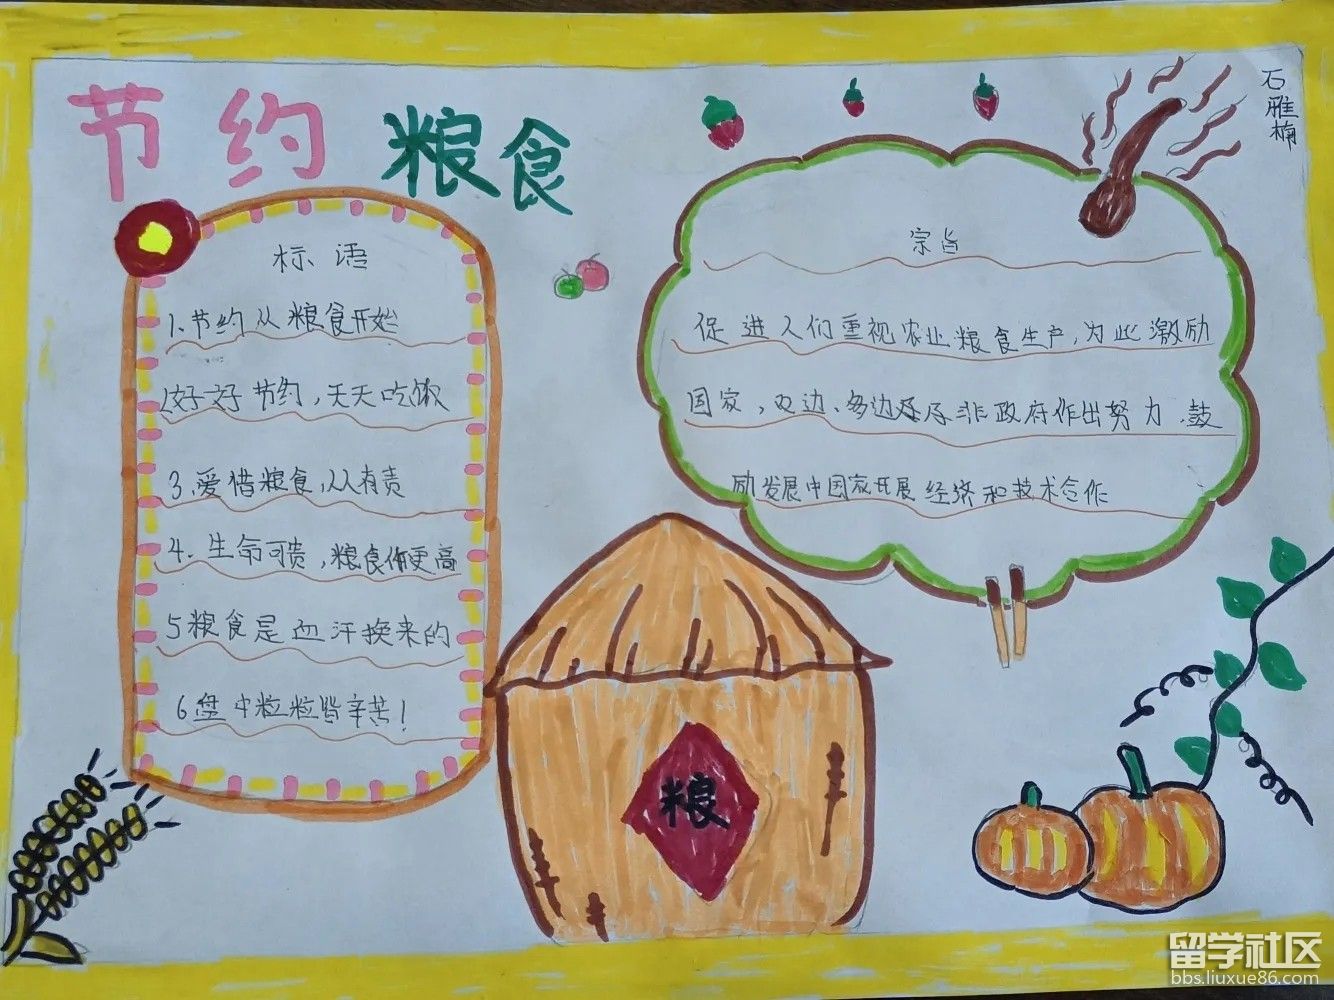 节约粮食
石雅楠
标语
1.节约从粮食开始
2好好节约,天天吃饭
3、爱惜粮食,从有责
4、生命可贵,粮食价更高
5粮食是血汗换来的
6盘中粒粒皆辛苦!
宗旨
促进人们重视农业粮食生产,为此激励
国家,双边、多边及非政府作出努力.鼓
励发展中国家开展经济和技术合作
粮
留学社区
bbs.liuxue86.com